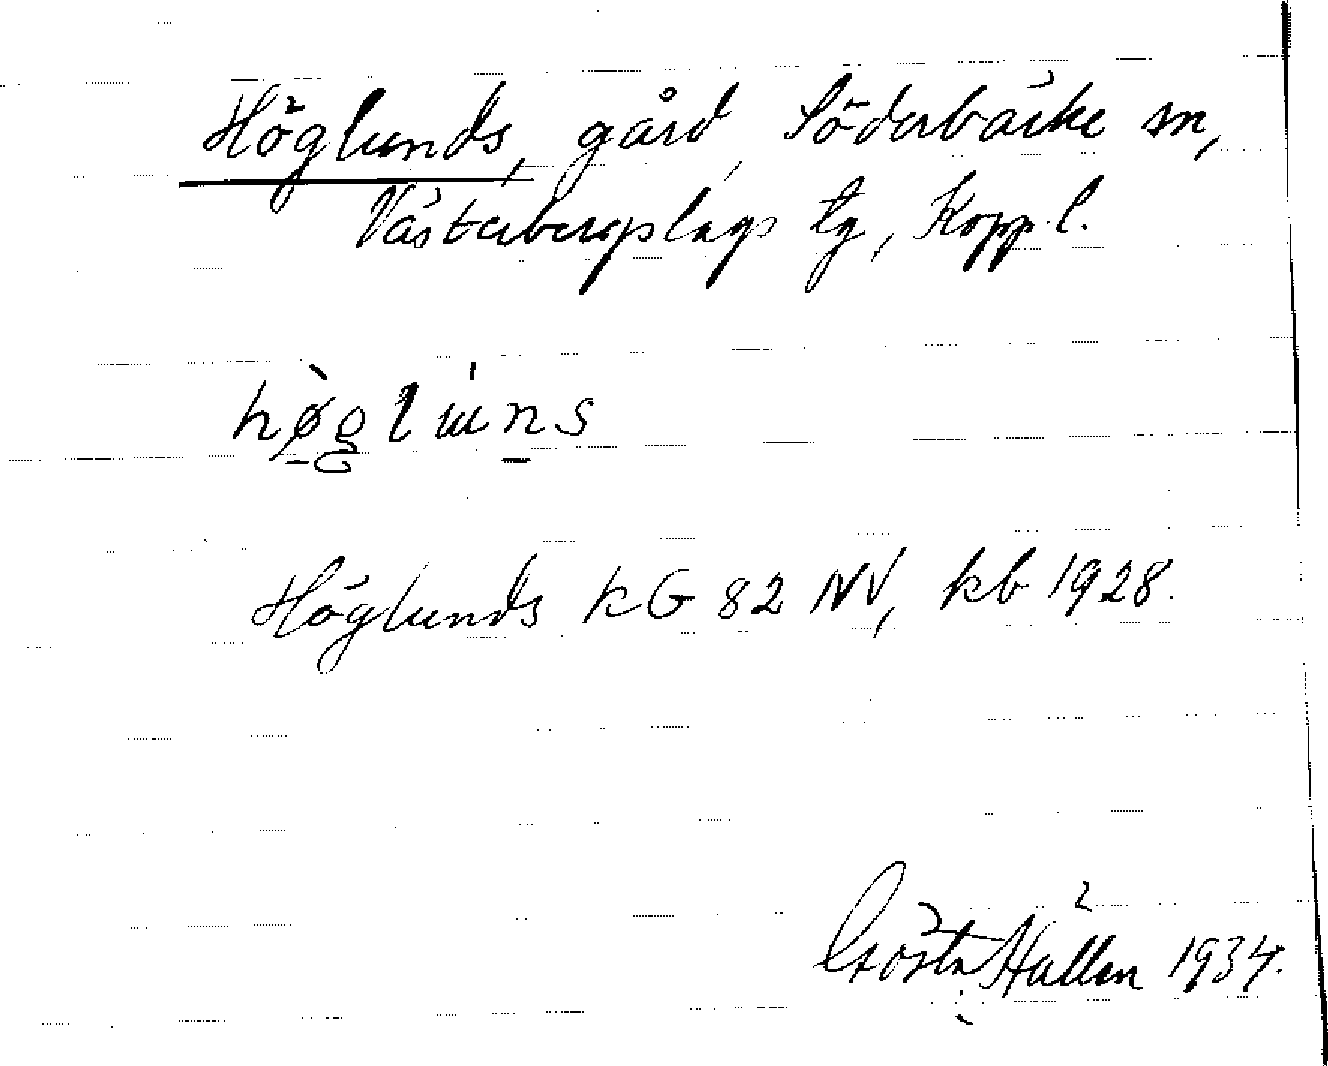 Höglunds, gård, Söderbärke sn,
Västerbergslags tg, Kopp. l.
hø̀glɯ́ns
Höglunds KG 82 NV, kb 1928.
Gösta Hallen 1934.